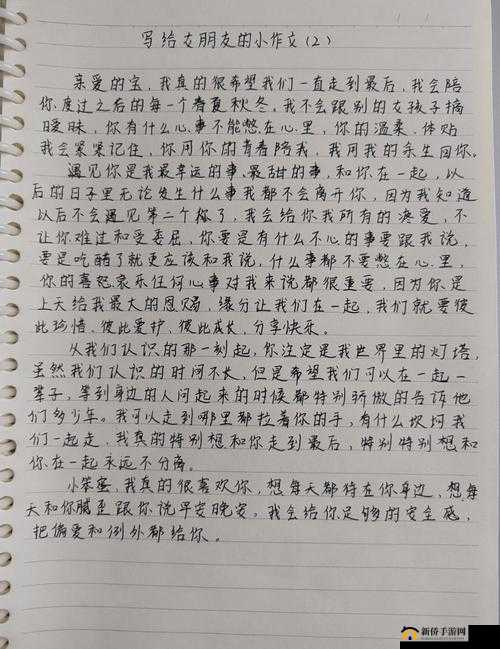 写给女朋友的小作文(2)
亲爱的宝,我真的很希望我们一直走到最后,我会陪
你度过之后的每一个春夏秋冬,我不会跟别的女孩子搞
暧昧,你有什么心事不能憋在心里,你的温柔、体贴
我会紧紧记住,你用你的青春陪我,我用我的余生回你。
遇见你是我最幸运的事、最甜的事,和你在一起,以
后的日子里无论发生什么事我都不会离开你,因为我知道
以后不会遇见第二个你了,我会给你我所有的疼爱,不
让你难过和受委屈,你要是有什么不心的事要跟我说,
要是吃醋了就更应该和我说,什么事都不要憋在心里,
你的喜怒哀乐任何心事对我来说都很重要,因为你是
上天给我最大的恩赐,缘分让我们在一起,我们就要彼
此珍惜、彼此爱护、彼此成长,分享快乐。
从我们认识的那一刻起,你注定是我世界里的灯塔,
虽然我们认识的时间不长,但是希望我们可以在一起一
辈子,等到身边的人问起来的时候都特别骄傲的告诉他
们多少年。我可以走到哪里都拉着你的手,有什么坎坷我
们一起走,我真的特别想和你走到最后,特别特别想和
你在一起永远不分离。
小笨蛋,我真的很喜欢你,想每天都待在你身边,想每
天和你腻歪跟你说早安晚安。我会给你足够的安全感,
把偏爱和例外都给你。
新侨手游网